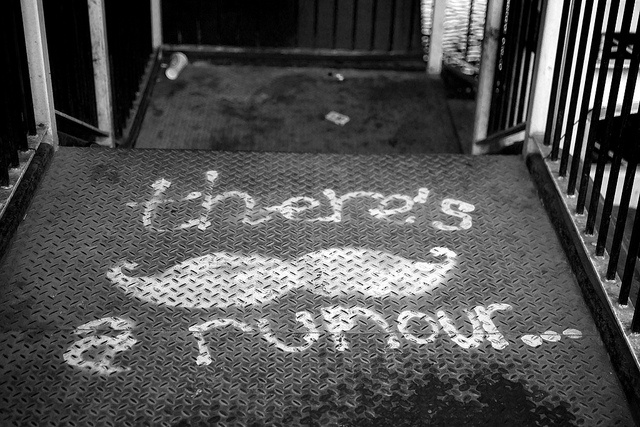 there's
a rumour...